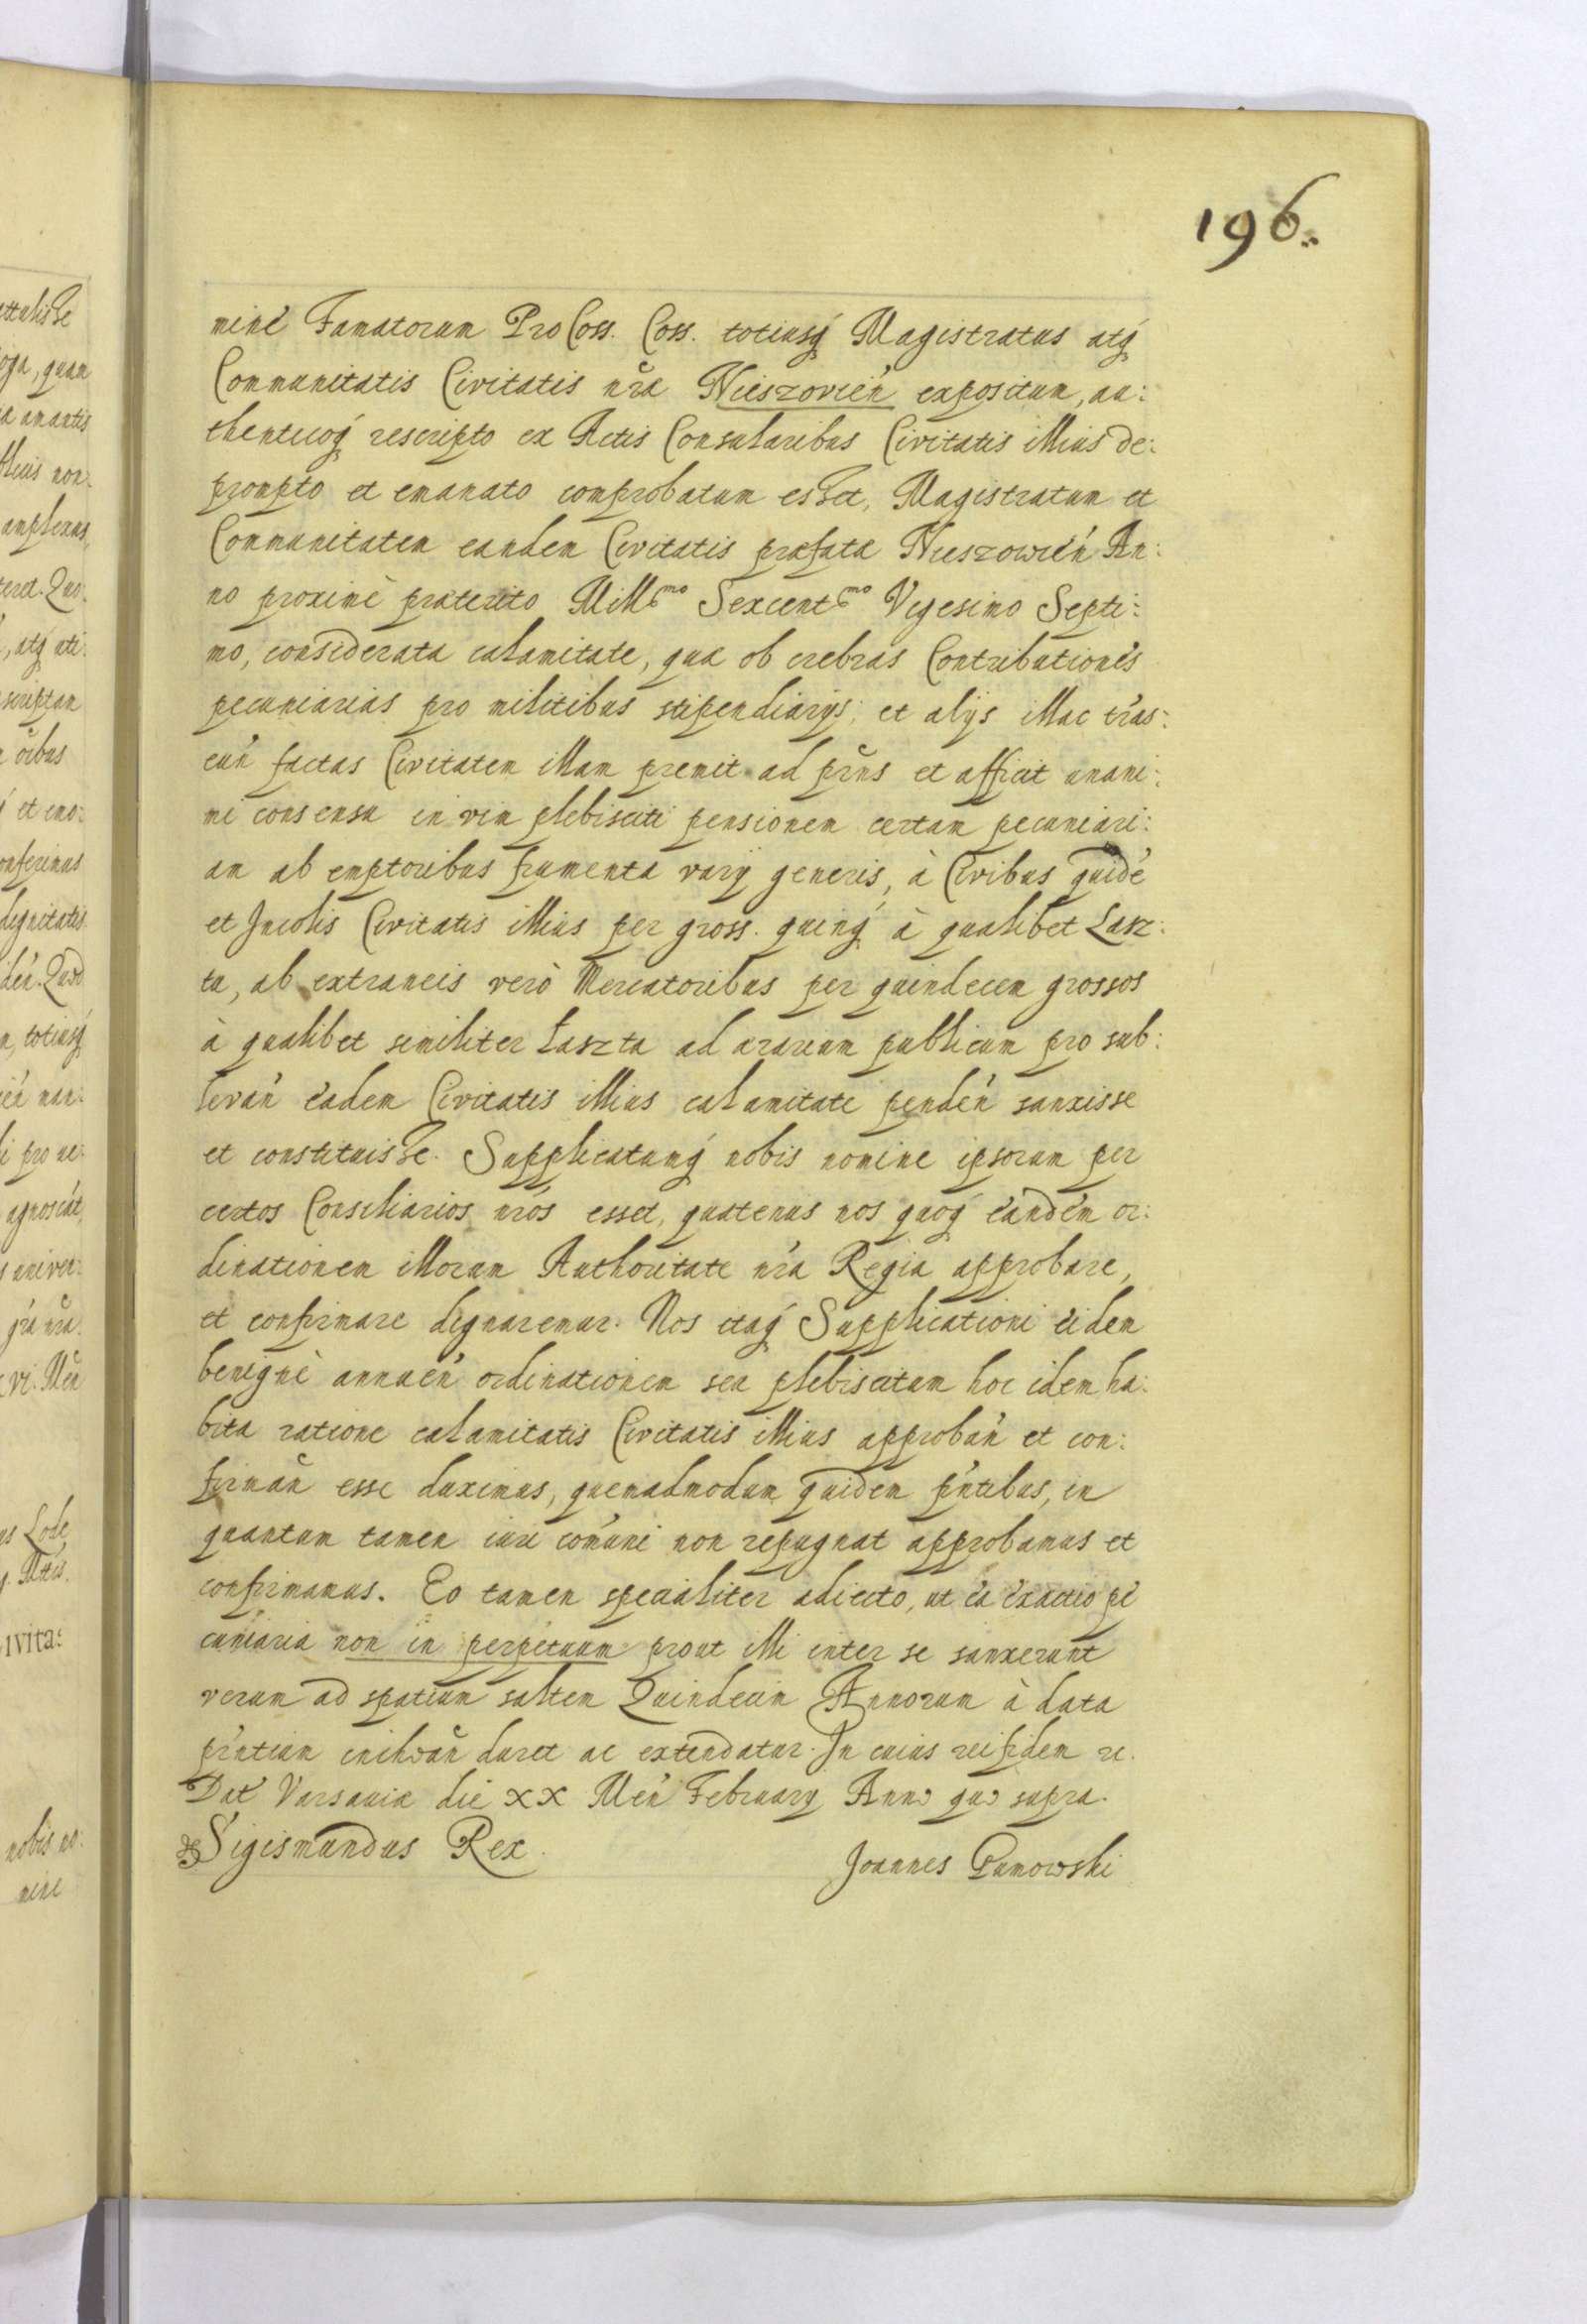 196.
mine Famatorum ProCoss. Coss. totiusq́ Magistratus atq́
Communitatis Civitatis nrã Nieszovień expositum, au:
thenticoq́ rescripto ex Actis Consularibus Civitatis illius de:
prompto et emanato comprobatum esset, Magistratum et
Communitatem eandem Civitatis præfatæ Nieszowień An:
no proximè præterito Mill͠mo Sexcent͠mo Vigesimo Septi:
mo, considerata calamitate, quæ ob crebras Contributiones
pecuniarias pro militibus stipendiarijs, et alijs illac trás:
euń factas Civitatem illam premit ad pr̃ns et afficit unani:
mi consensu in vim plebisciti pensionem certam pecuniari:
am ab emptoribus frumenta varij generis, à Civibus quidé
et Incolis Civitatis illius per gross. quinq́ à qualibet Lasz:
ta, ab extraneis verò Mercatoribus per quindecem grossos
à qualibet similiter Łaszta ad ærarium publicum pro sub:
levań eadem Civitatis illius calamitate pendeń sanxisse
et constituisse. Supplicatumq́ nobis nomine ipsorum per
certos Consiliarios nrós esset, quatenus nos quoq́ eandem or:
dinationem illorum Authoritate nrá Regia approbare,
et confirmare dignaremur. Nos itaq́ Supplicationi eidem
benignè annueń ordinationem seu plebiscitum hoc idem ha:
bita ratione calamitatis Civitatis illius approbań et con:
firmań esse duximus, quemadmodum quidem pńtibus, in
quantum tamen iuri cómuni non repugnat approbamus et
confirmamus. Eo tamen specialiter adiecto, ut ea exactio pe
cuniaria non in perpetuum prout illi inter se sanxerunt
verum ad spatium saltem Quindecim Annorum à data
pŕntium inchoań duret ac extendatur. In cuius rei fidem rc.
Dat Varsaviæ die XX Meń February Anno quo supra.
Sigismundus Rex.
Joannes Gumowski